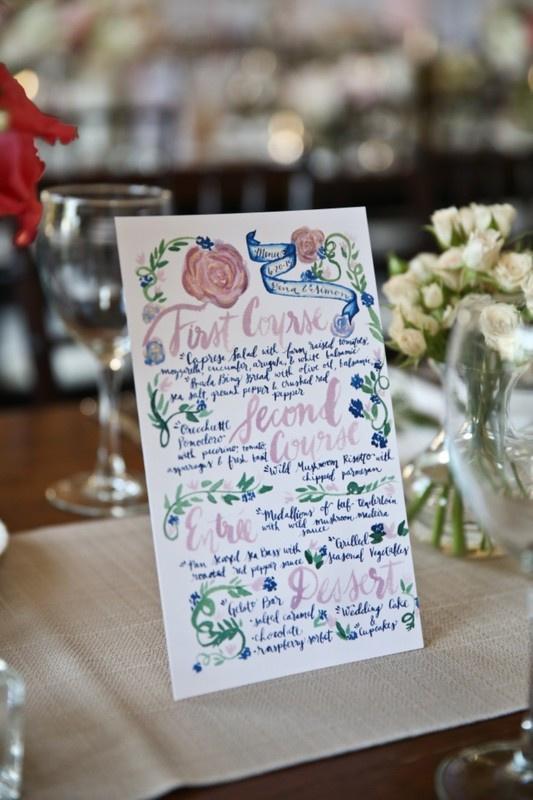 Menu
6·20·15
& Simon
First Course
Caprese Salad with farm raised tomatoes,
mozzarella, cucumber, arugula, & white balsamic
Bread with olive oil, balsamic,
sea salt, ground pepper & crushed red
pepper
Second
Course
Orecchiette
Pomodoro
with pecorino, tomato,
asparagus & fresh basil
Wild Mushroom Risotto with
chipped parmesan
Entrée
Medallions of beef tenderloin
with wild mushroom madeira
sauce
Pan seared sea Bass with
roasted red pepper sauce
Grilled
seasonal vegetables
Dessert
Gelato Bar
-salted caramel
-chocolate
-raspberry sorbet
Wedding Cake
&
Cupcakes